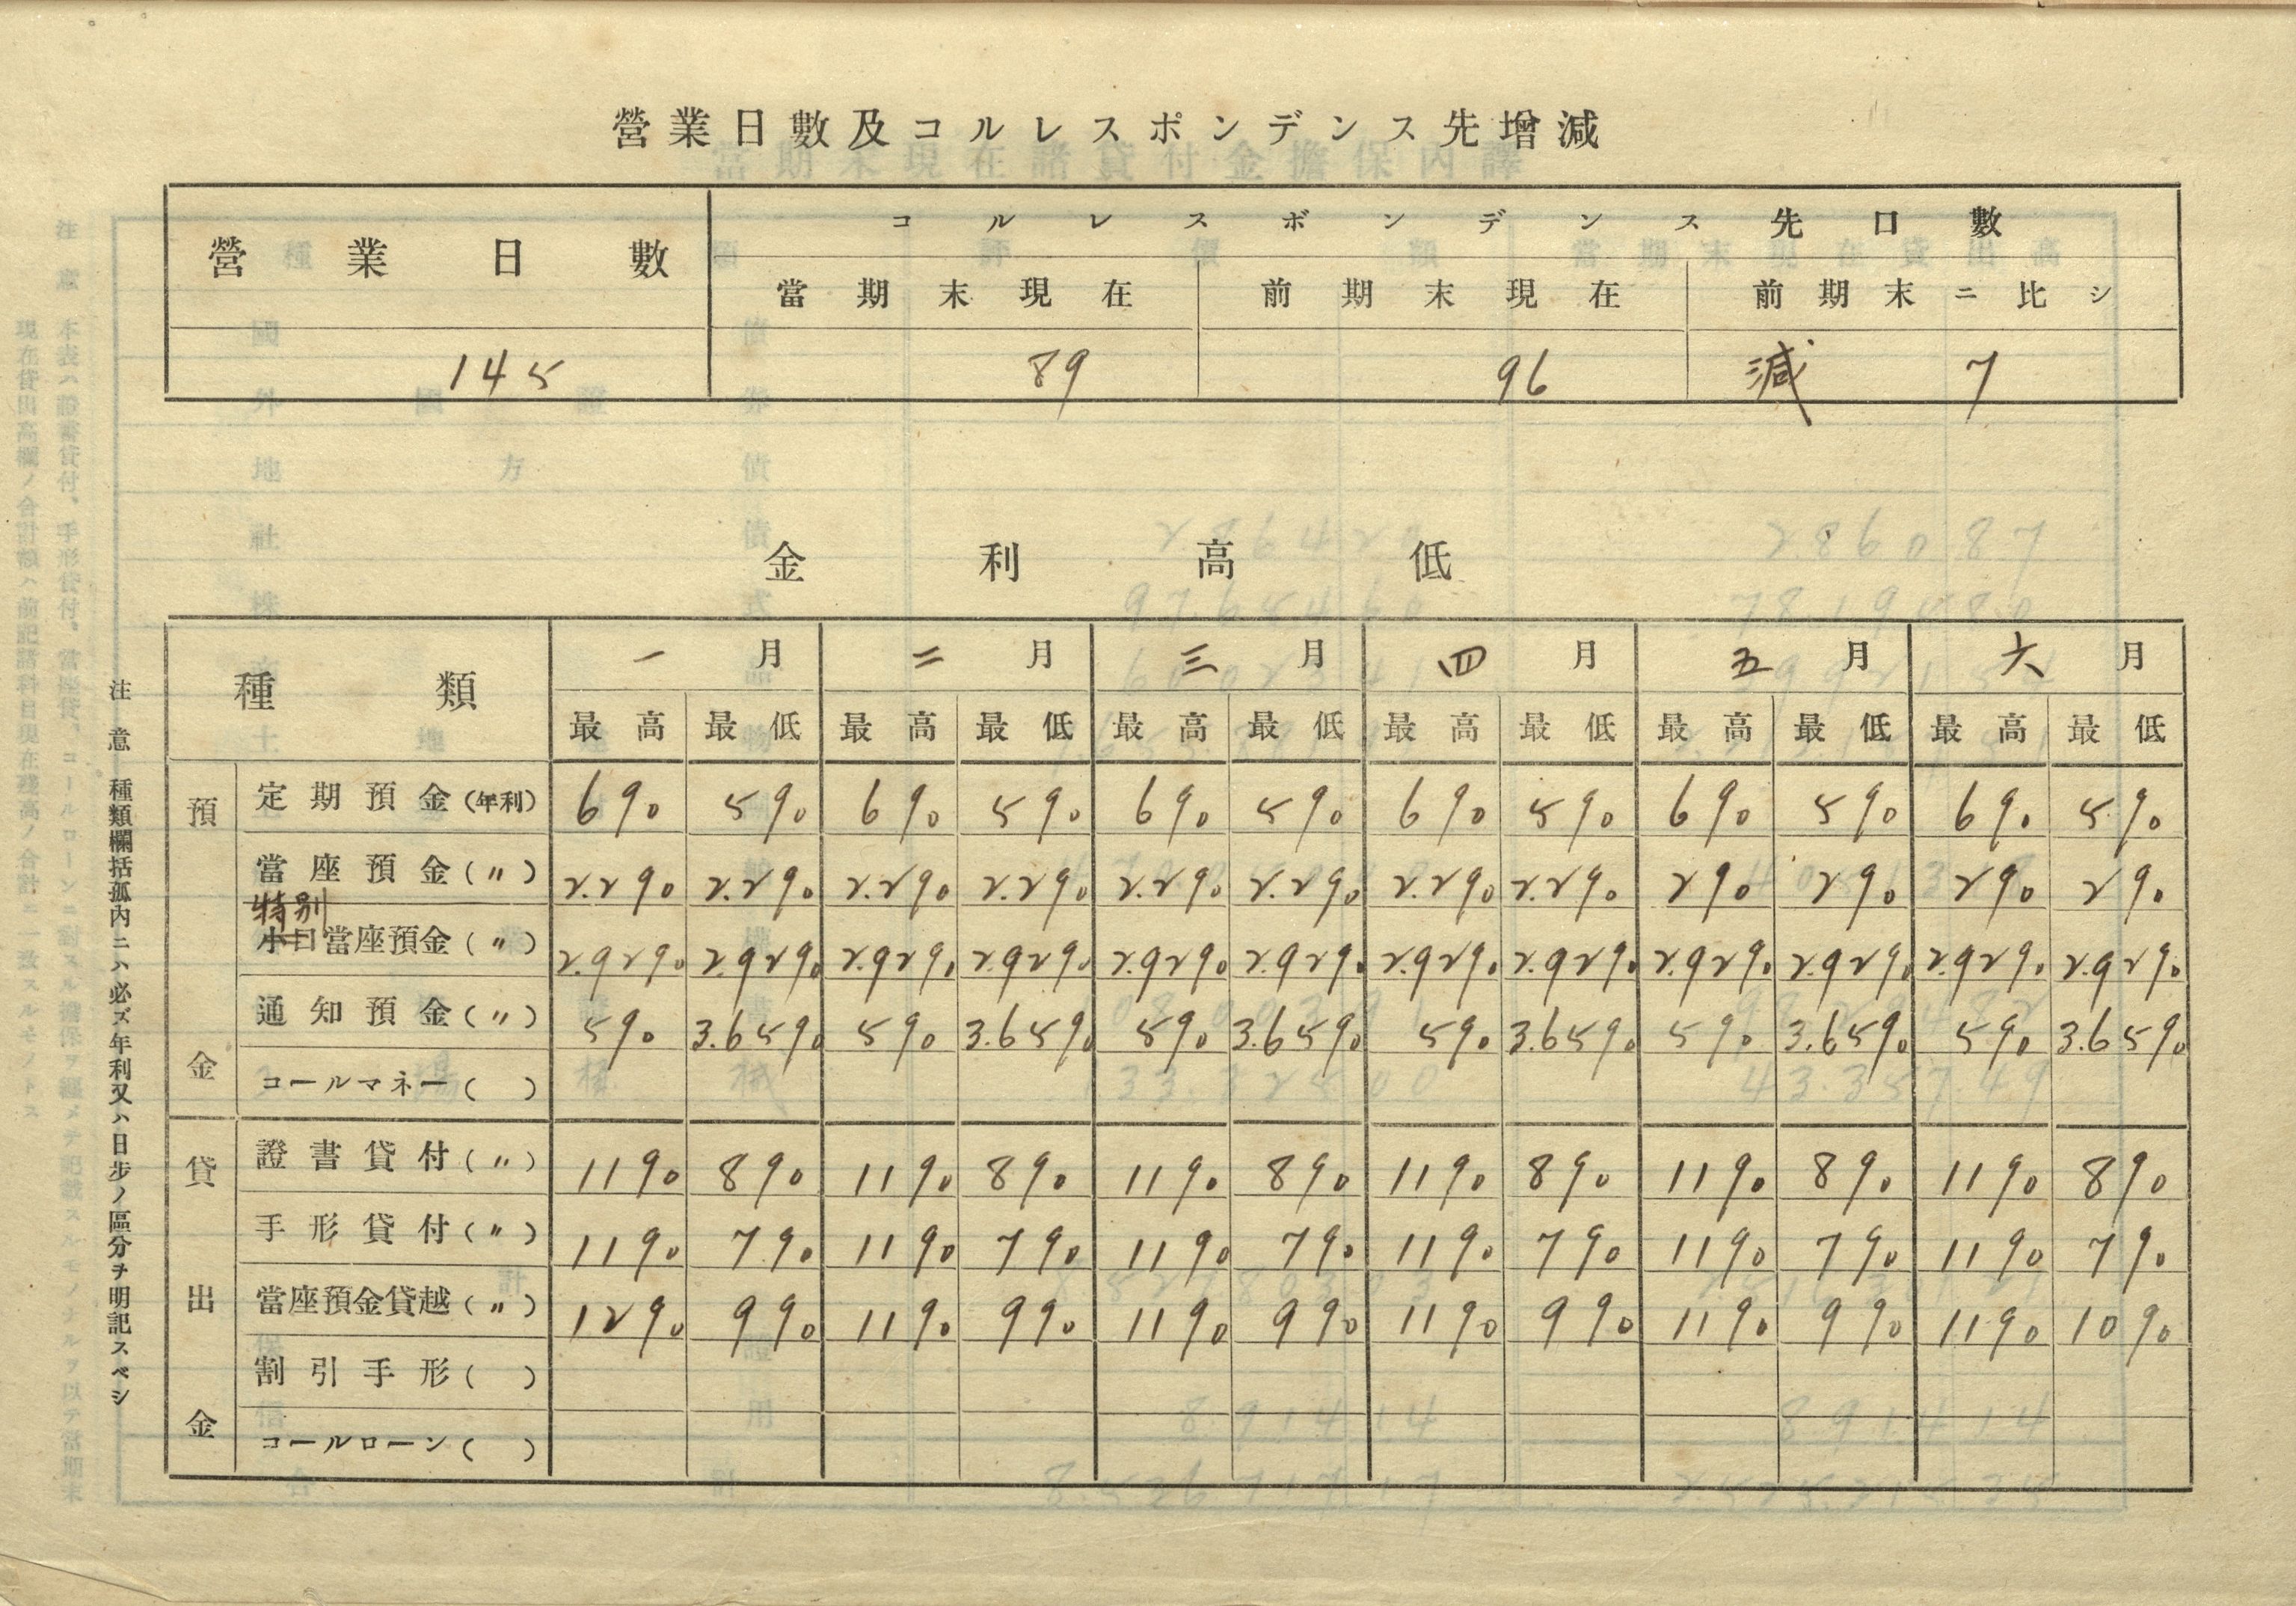 營業日數及コルレスポンデンス先增減
營業日數 コルレスポンデンス先口數
當期末現在 前期末現在 前期末ニ比シ
145 89 96 減 7
金利高低
種類 一月 二月 三月 四月 五月 六月
最高 最低 最高 最低 最高 最低 最高 最低 最高 最低 最高 最低
預金
定期預金(年利) 6% 5% 6% 5% 6% 5% 6% 5% 6% 5% 6% 5%
當座預金(〃) 2.2% 2.2% 2.2% 2.2% 2.2% 2.2% 2.2% 2.2% 2% 2% 2% 2%
特別
小口當座預金(〃) 2.92% 2.92% 2.92% 2.92% 2.92% 2.92% 2.92% 2.92% 2.92% 2.92% 2.92% 2.92%
通知預金(〃) 5% 3.65% 5% 3.65% 5% 3.65% 5% 3.65% 5% 3.65% 5% 3.65%
コールマネー( )
貸出金
證書貸付(〃) 11% 8% 11% 8% 11% 8% 11% 8% 11% 8% 11% 8%
手形貸付(〃) 11% 7% 11% 7% 11% 7% 11% 7% 11% 7% 11% 7%
當座預金貸越(〃) 12% 9% 11% 9% 11% 9% 11% 9% 11% 9% 11% 10%
割引手形( )
コールローン( )
注意 種類欄括孤內ニハ必ズ年利又ハ日步ノ區分ヲ明記スベシ